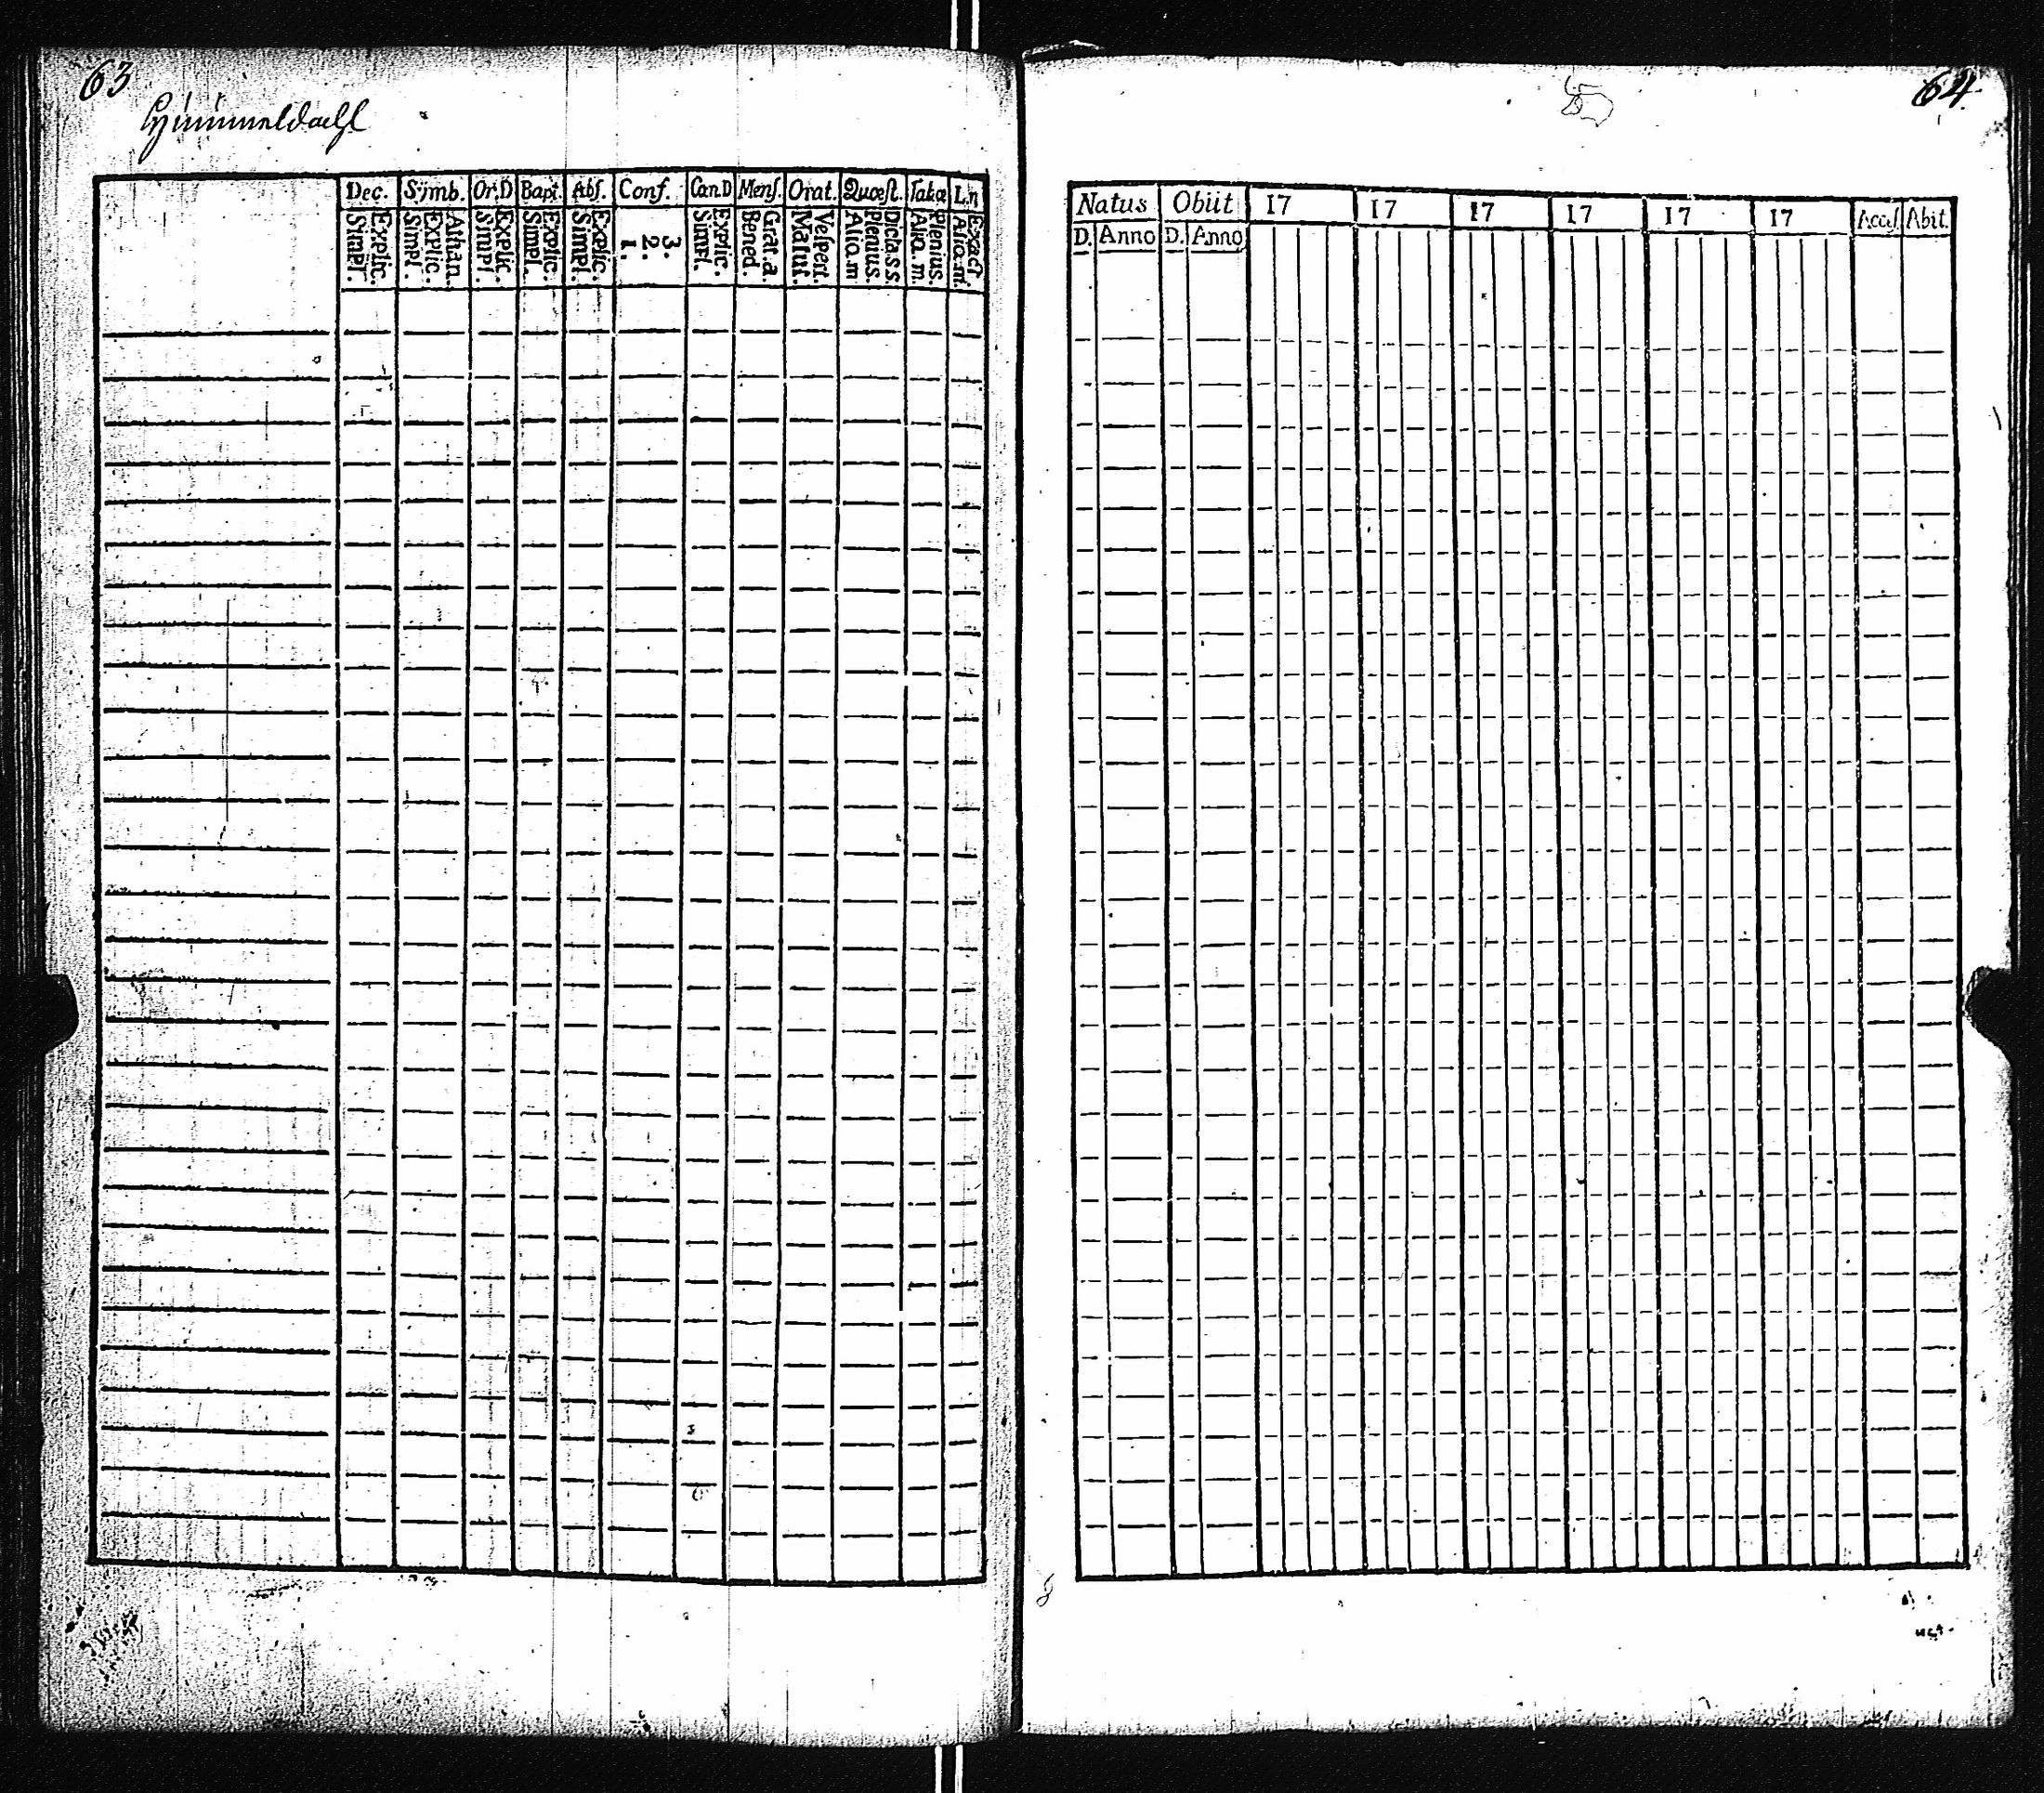 63
Himmeldahl
Dec. Sÿmb. Or.D Bapt. Abſ. Conf. Can.D Menſ. Orat. Quœſt. Tabœ L.n
Explic. Simpl. Athan. Explic. Simpl. Explic. Simpl. Explic. Simpl. Explic. Simpl. 3. 2. 1. Explic. Simpl. Grat.a. Bened. Veſpert. Matut. Dicta.s.s. Plenius. Aliq.m Plenius. Aliq.m Exact Aliq.m.
64.
Natus Obiit 17 17 17 17 17 17 Acceſ. Abit.
D. Anno D. Anno